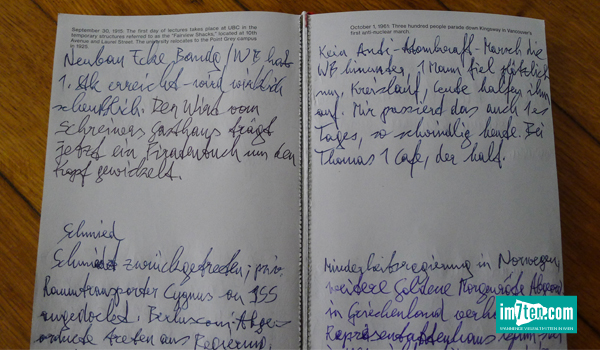 September 30, 1915: The first day of lectures takes place at UBC in the
temporary structures referred to as the "Fairview Shacks," located at 10th
Avenue and Laurel Street. The university relocates to the Point Grey campus
in 1925.
Neubau Ecke Bandg/WB hat
1. Stk erreicht - wird wirklich
scheußlich. Der Wirt vom
Schreiners Gasthaus trägt
jetzt ein Piratentuch um den
Kopf gewickelt.
Schmied
Schmied zurückgetreten, priv.
Raumtransporter Cygnus an ISS
angedockt. Berlusconi-Abge-
ordnete treten aus Regierung,
October 1, 1961: Three hundred people parade down Kingsway in Vancouver's
first anti-nuclear march.
Kein Anti-Atomkraft-Marsch die
WB hinunter. 1 Mann fiel plötzlich
um, Kreislauf, Leute halfen ihm
auf. Mir passiert das auch 1es
Tages, so schwindlig heute. Bei
Thomas 1 Cafe, der half.
Minderheitsregierung in Norwegen,
weitere Goldene Morgenröte Abgeord
in Griechenland verh
Repräsentantenhaus
im7ten.com
SPANNENDE VIELFALT MITTEN IN WIEN